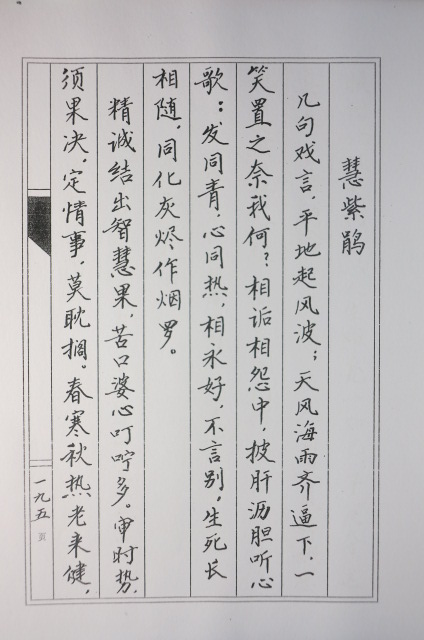 慧紫鹃
几句戏言，平地起风波；天风海雨齐逼下，一
笑置之奈我何？相诟相怨中，披肝沥胆听心
歌：发同青，心同热，相永好，不言别，生死长
相随，同化灰烬作烟罗。
精诚结出智慧果，苦口婆心叮咛多。审时势，
须果决，定情事，莫耽搁。春寒秋热老来健，
一九五页